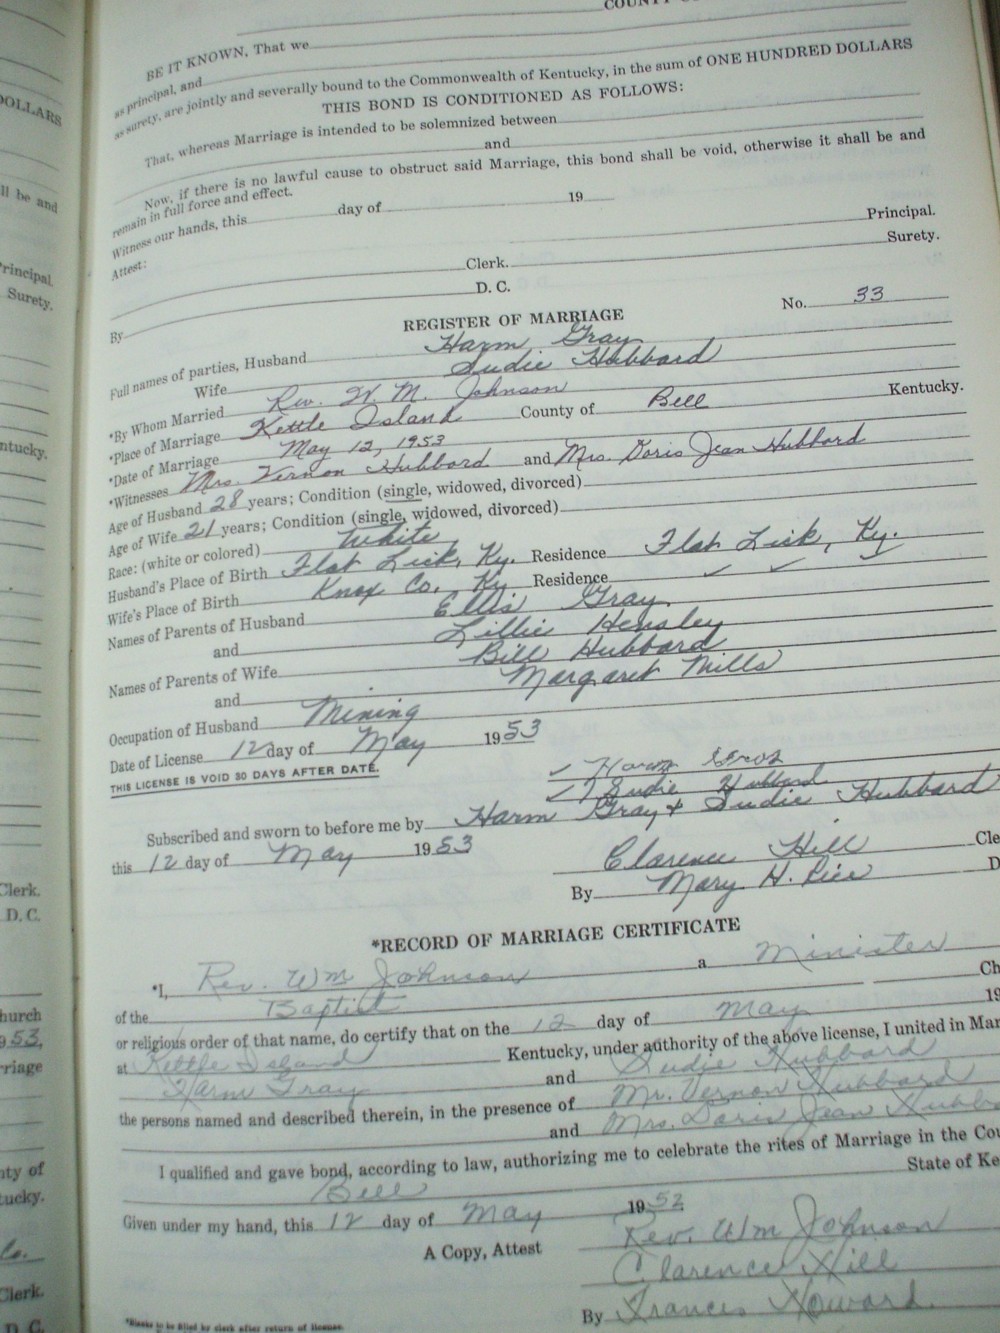 COUNTY
BE IT KNOWN, That we
as principal, and
as surety, are jointly and severally bound to the Commonwealth of Kentucky, in the sum of ONE HUNDRED DOLLARS
THIS BOND IS CONDITIONED AS FOLLOWS:
That, whereas Marriage is intended to be solemnized between
and
Now, if there is no lawful cause to obstruct said Marriage, this bond shall be void, otherwise it shall be and
remain in full force and effect.
Witness our hands, this day of 19
Principal.
Attest: Surety.
Clerk.
By D. C.
REGISTER OF MARRIAGE No. 33
Full names of parties, Husband Harm Gray
Wife Sudie Hubbard
*By Whom Married Rev. W. M. Johnson
*Place of Marriage Kettle Island County of Bell Kentucky.
*Date of Marriage May 12, 1953
*Witnesses Mrs. Vernon Hubbard and Mrs. Doris Jean Hubbard
Age of Husband 28 years; Condition (single, widowed, divorced)
Age of Wife 21 years; Condition (single, widowed, divorced)
Race: (white or colored) White
Husband's Place of Birth Flat Lick, Ky. Residence Flat Lick, Ky.
Wife's Place of Birth Knox Co. Ky Residence ✓ ✓ ✓
Names of Parents of Husband Ellis Gray
and Lillie Hensley
Names of Parents of Wife Bill Hubbard
and Margaret Mills
Occupation of Husband Mining
Date of License 12 day of May 1953
THIS LICENSE IS VOID 30 DAYS AFTER DATE.
✓ Harm
✓ Sudie Hubbard
Subscribed and sworn to before me by Harm Gray & Sudie Hubbard
this 12 day of May 1953
Clarence Hill Cle
By Mary H. Rice D
*RECORD OF MARRIAGE CERTIFICATE
*I, Rev. Wm Johnson a Minister
of the Baptist Ch
or religious order of that name, do certify that on the 12 day of May 19
at Kettle Island Kentucky, under authority of the above license, I united in Mar
Harm Gray and Sudie Hubbard
the persons named and described therein, in the presence of Mr. Vernon Hubbard
and Mrs. Doris Jean Hubb
I qualified and gave bond, according to law, authorizing me to celebrate the rites of Marriage in the Cou
Bell State of Ke
Given under my hand, this 12 day of May 1952
Rev. Wm Johnson
A Copy, Attest Clarence Hill
By Frances Howard
*Blanks to be filled by clerk after return of license.
DOLLARS
ll be and
Principal.
Surety.
ntucky.
Clerk.
D. C.
hurch
953,
rriage
nty of
tucky.
Co.
Clerk.
D. C.